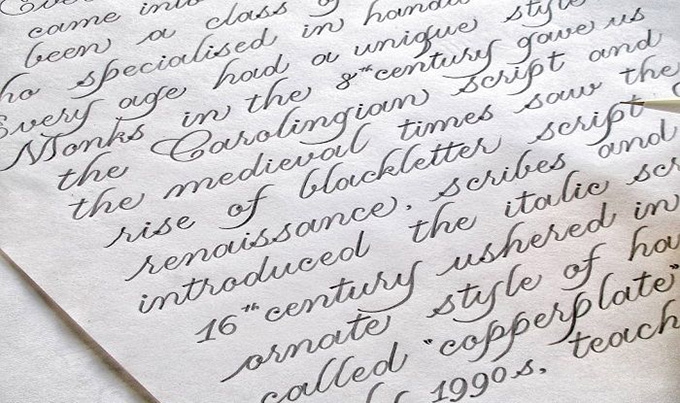 came into
been a class
who specialised in
Every age had a unique style
Monks in the 8th century gave us
the Carolingian script and
the medieval times saw the
rise of blackletter script
renaissance, scribes and
introduced the italic
16th century ushered in
ornate style of
called "copperplate"
1990s, teach